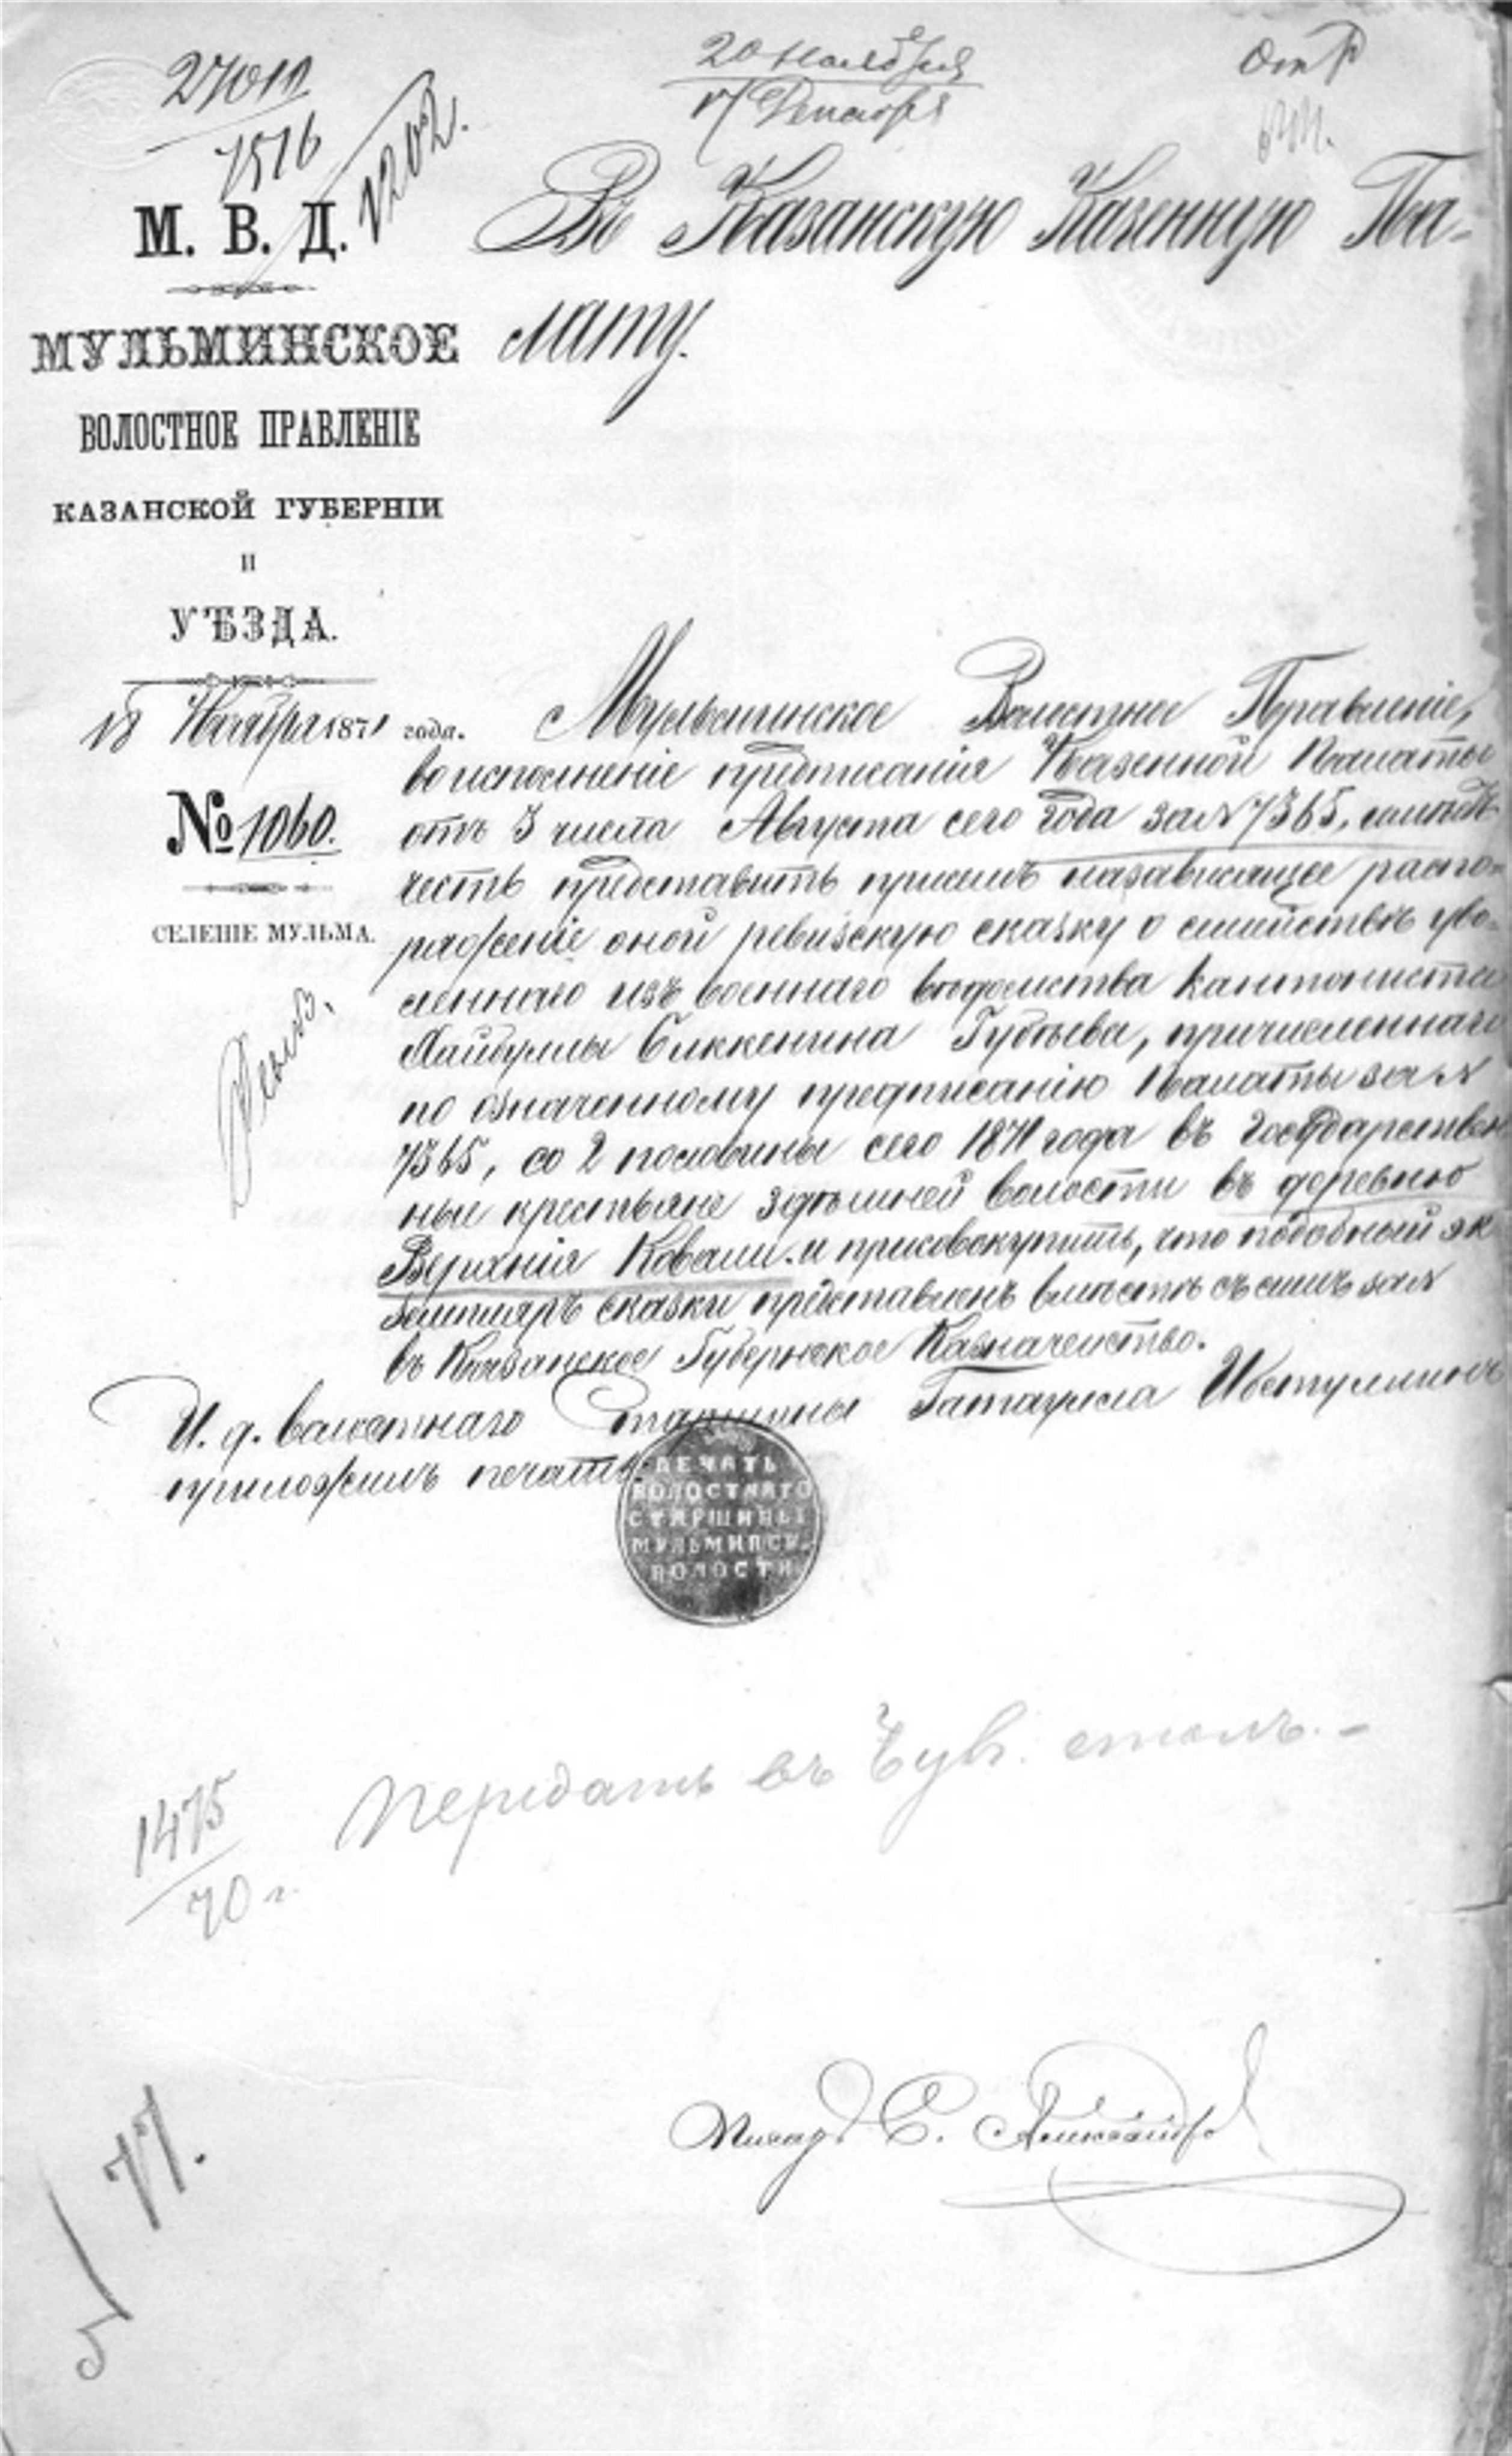 27010
1516
1202.
20 Ноября
17 Декабря
М. В. Д.
МУЛЬМИНСКОЕ
ВОЛОСТНОЕ ПРАВЛЕНІЕ
КАЗАНСКОЙ ГУБЕРНІИ
И
УѢЗДА.
18 Ноября 1871 года.
№ 1060.
СЕЛЕНІЕ МУЛЬМА.
Въ Казанскую Казенную Па-
лату.
Мульминское Волостное Правленіе,
во исполненіе предписанія Казенной Палаты
отъ 3 числа Августа сего года за № 7365, имѣетъ
честь представить при семъ на зависящее распо-
ряженіе оной ревизскую сказку о семействѣ уво-
леннаго изъ военнаго вѣдомства кантониста
Биккенина Губѣева, причисленнаго
по означенному предписанію Палаты за №
7365, со 2 половины сего 1871 года въ Государствен
ные крестьяне здѣшней волости въ деревню
Верхнія Ковали. и присовокупить, что подобный эк
земпляръ сказки представленъ вмѣстѣ съ симъ за №
въ Казанское Губернское Казначейство.
И. д. волостнаго Старшины Ибетуллинъ
приложилъ печать.
ПЕЧАТЬ
ВОЛОСТНАГО
СТАРШИНЫ
МУЛЬМИНСК.
ВОЛОСТИ
Передать въ Рев. столъ.-
1475
70 г.
Писарь С. Александров
77.